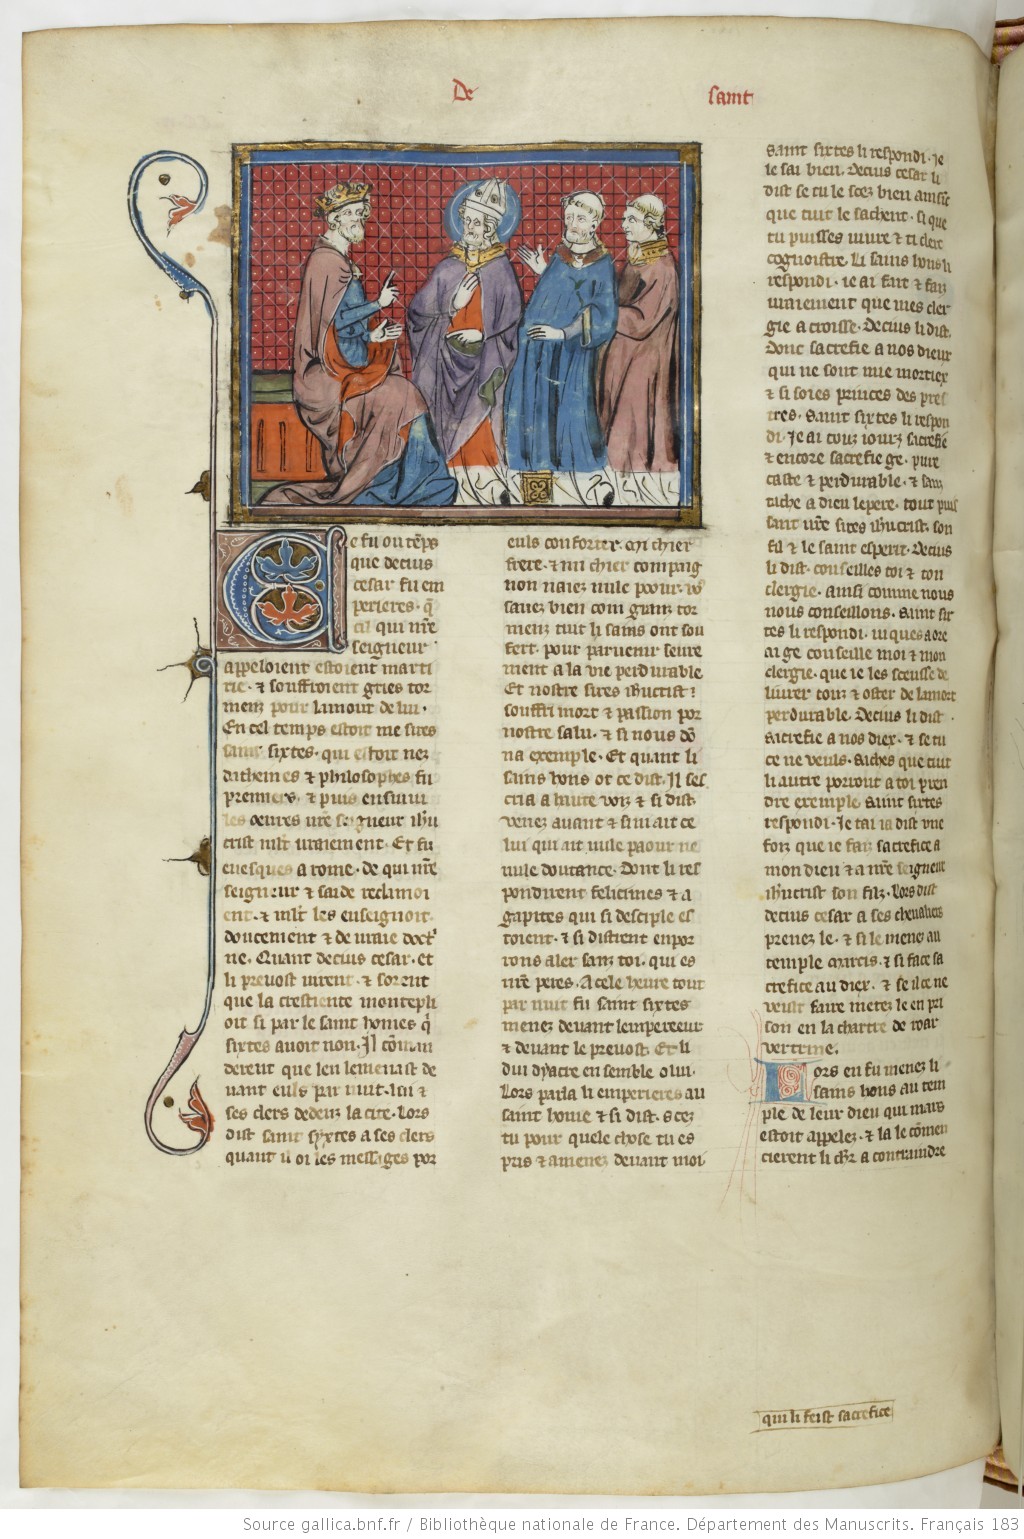 De saint
Ce fu ou tẽps
que decius
cesar fu em
perieres. q̃
cil qui nr̃e
seigneur
appeloient estoient marti
rie. ⁊ souffroient gries tor
menz pour lamour de lui.
En cel temps estoit me sires
saint sixtes. qui estoit nez
dathenes ⁊ philosophes fu
premiers. ⁊ puis ensuiui
les oeures nr̃e seigneur ihũ
crist ml̃t uraiement. Et fu
euesques a rome. de qui nr̃e
seigneur ⁊ saide reclamoi
ent. ⁊ ml̃t les enseignoit
doucement ⁊ de uraie doct̾
ne. Quant decius cesar. et
li preuost uirent. ⁊ sorent
que la crestiente montepli
oit si par le saint homes q̃
sixtes auoit non. Il cõman
derent que len lemenast de
uant euls par nuit. lui ⁊
ses clers dedenz la cite. Lors
dist saint syxtes a ses clers
quant il oi les messages por
euls conforter. mi chier
frere. ⁊ mi chier compaig
non naiez nule poour. v9
sauez bien com granz tor
menz tuit li sains ont sou
fert. pour paruenir seure
ment a la vie perdurable.
Et nostre sires ihũcrist
souffri mort ⁊ passion por
nostre salu. ⁊ si nous dõ
na exemple. Et quant li
sains hons ot ce dist. Il ses
cria a haute voiz ⁊ si dist.
venez auant ⁊ si ni ait ce
lui qui ait nule paour ne
nule doutance. Dont li res
pondirent felicimes ⁊ a
gapites qui si desciple es
toient. ⁊ si distrent enpor
rons aler sanz toi. qui es
nr̃e peres. A cele heure tout
par nuit fu saint sixtes
menez deuant lempereeur
⁊ deuant le preuost. Et li
dui dyacre ensemble o lui.
Lors parla li emperieres au
saint home ⁊ si dist. scez
tu pour quele chose tu es
pris ⁊ amenez deuant moi
saint sixtes li respondi. ie
le sai bien. Decius cesar li
dist se tu le scez bien ainsi
que tuit le sachent. si que
tu puisses uiure ⁊ ti clerc
cognoistre. Li sains hons li
respondi. ie ai fait ⁊ faiz
uraiement que mes cler
gie acroisse. Decius li dist.
Donc sacrefie a nos dieux
qui ne sont mie mortiex
⁊ si soies princes des pres
tres. saint sixtes li respon
di. Je ai touz iourz sacrefie
⁊ encore sacrefie ge. pure
caste ⁊ perdurable. ⁊ sanz
tache a dieu le pere. tout puis
sant nr̃e sires ihũcrist. son
fil ⁊ le saint esperit. Decius
li dist. conseilles toi ⁊ ton
clergie. ainsi comme nous
nous conseillons. saint six
tes li respondi. iu ques a ore
ai ge conseille moi ⁊ mon
clergie. que ie les sceusse de
liurer touz ⁊ oster de la mort
perdurable. Decius li dist.
sacrefie a nos diex. ⁊ se tu
ce ne veuls. saches que tuit
li autre porront a toi pren
dre exemple. saint sixtes
respondi. Je tai ia dist vne
foiz que ie faiz sacrefice a
mon dieu ⁊ a nr̃e seigneur
ihũcrist son filz. Lors dist
decius cesar a ses cheualiers
prenez le. ⁊ si le menez au
temple marcis. ⁊ si face sa
crefice au diex. ⁊ se il ce ne
veust faire metez le en pri
son en la chartre de mar
vertine.
Lors en fu menez li
sains hons au tem
ple de leur dieu qui mars
estoit appelez. ⁊ la le cõmen
cierent li ch̃r a contraindre
qui li feist sacrefice
Source gallica.bnf.fr / Bibliothèque nationale de France. Département des Manuscrits. Français 183